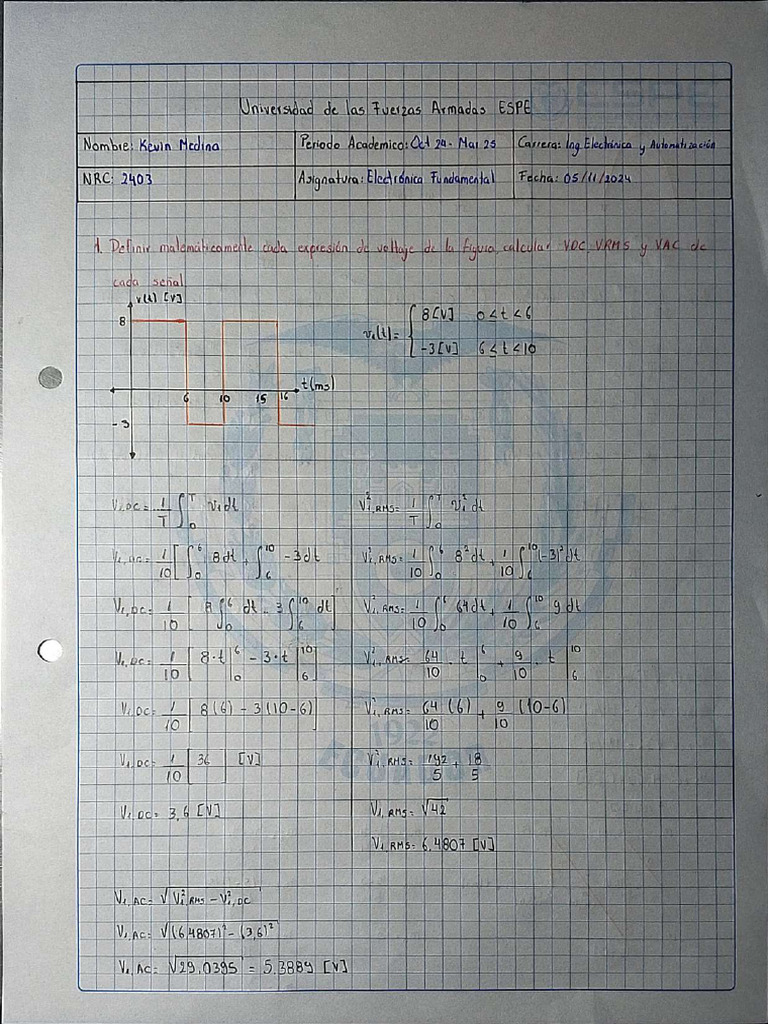 Universidad de las Fuerzas Armadas ESPE
Nombre: Kevin Medina
Periodo Academico: Oct 24 - Mar 25
Carrera: Ing. Electrónica y Automatización
NRC: 2403
Asignatura: Electrónica Fundamental
Fecha: 05/11/2024
1. Definir matemáticamente cada expresión de voltaje de la figura, calcular VDC, VRMS y VAC de
cada señal
v(t) [V]
8
-3
6 10 15 16
t(ms)
v₁(t)= { 8[V] 0≤t<6
-3[V] 6≤t<10
V₁,DC = 1/T ∫₀ᵀ v₁dt
V₁,DC = 1/10 [ ∫₀⁶ 8dt + ∫₆¹⁰ -3dt
V₁,DC = 1/10 [ 8∫₀⁶ dt - 3∫₆¹⁰ dt ]
V₁,DC = 1/10 [ 8·t|₀⁶ - 3·t|₆¹⁰ ]
V₁,DC = 1/10 [ 8(6) - 3(10-6) ]
V₁,DC = 1/10 [ 36 ] [V]
V₁,DC = 3,6 [V]
V²₁,RMS = 1/T ∫₀ᵀ v₁² dt
V²₁,RMS = 1/10 ∫₀⁶ 8² dt + 1/10 ∫₆¹⁰ (-3)² dt
V²₁,RMS = 1/10 ∫₀⁶ 64dt + 1/10 ∫₆¹⁰ 9 dt
V²₁,RMS = 64/10 · t|₀⁶ + 9/10 · t|₆¹⁰
V²₁,RMS = 64/10 (6) + 9/10 (10-6)
V²₁,RMS = 192/5 + 18/5
V₁,RMS = √42
V₁,RMS = 6,4807 [V]
V₁,AC = √V²₁,RMS - V²₁,DC
V₁,AC = √(6,4807)² - (3,6)²
V₁,AC = √29,0395 = 5,3889 [V]
1922
ECUADOR